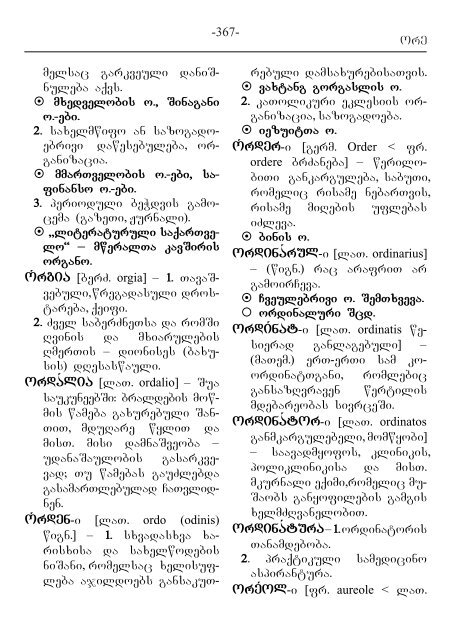 -367-
ორე
მელსაც გარკვეული დანიშ-
ნულება აქვს.
მხედველობის ო., შინაგანი
ო.-ები.
2. სახელმწიფო ან საზოგადო-
ებრივი დაწესებულება, ორ-
განიზაცია.
მმართველობის ო.-ები, სა-
ფინანსო ო.-ები.
3. პერიოდული ბეჭდვის გამო-
ცემა (გაზეთი, ჟურნალი).
„ლიტერატურული საქართვე-
ლო“ – მწერალთა კავშირის
ორგანო.
ორგია [ბერძ. orgia] – 1. თავაშ-
ვებული, წრეგადასული დროს-
ტარება, ქეიფი.
2. ძველ საბერძნეთსა და რომში
ღვინის და მხიარულების
ღმერთის – დიონისეს (ბახუ-
სის) დღესასწაული.
ორდალია [ლათ. ordalio] – შუა
საუკუნეებში: ბრალდების მოწ-
მის წამება გახურებული შან-
თით, მდუღარე წყლით და
მისთ. მისი დამნაშვეობა –
უდანაშაულობის გასარკვე-
ვად; თუ წამებას გაუძლებდა
გასამართლებულად ჩათვლიდ-
ნენ.
ორდენ-ი [ლათ. ordo (odinis)
წიგნ.] – 1. სხვადასხვა ხა-
რისხისა და სახელწოდების
ნიშანი, რომელსაც ხელისუფ-
ლება აჯილდოებს განსაკუთ-
რებული დამსახურებისათვის.
ვახტანგ გორგასლის ო.
2. კათოლიკური ეკლესიის ორ-
განიზაცია, საზოგადოება.
იეზუიტთა ო.
ორდერ-ი [გერმ. Order < ფრ.
ordere ბრძანება] – წერილო-
ბითი განკარგულება, საბუთი,
რომელიც რისამე ნებართვის,
რისამე მიღების უფლებას
იძლევა.
ბინის ო.
ორდინარულ-ი [ლათ. ordinarius]
– (წიგნ.) რაც არაფრით არ
გამოირჩევა.
ჩვეულებრივი ო. შემთხვევა.
ორდინალური შცდ.
ორდინატ-ი [ლათ. ordinatis წე-
სიერად განლაგებული] –
(მათემ.) ერთ-ერთი სამ კო-
ორდინატთგანი, რომლებიც
განსაზღვრავენ წერტილის
მდებარეობას სივრცეში.
ორდინატორ-ი [ლათ. ordinatos
განმკარგულებელი, მომწყობი]
– საავადმყოფოს, კლინიკის,
პოლიკლინიკისა და მისთ.
მკურნალი ექიმი, რომელიც მუ-
შაობს განყოფილების გამგის
ხელმძღვანელობით.
ორდინატურა – 1. ორდინატორის
თანამდებობა.
2. პრაქტიკული სამედიცინო
ასპირანტურა.
ორეოლ-ი [ფრ. aureole < ლათ.